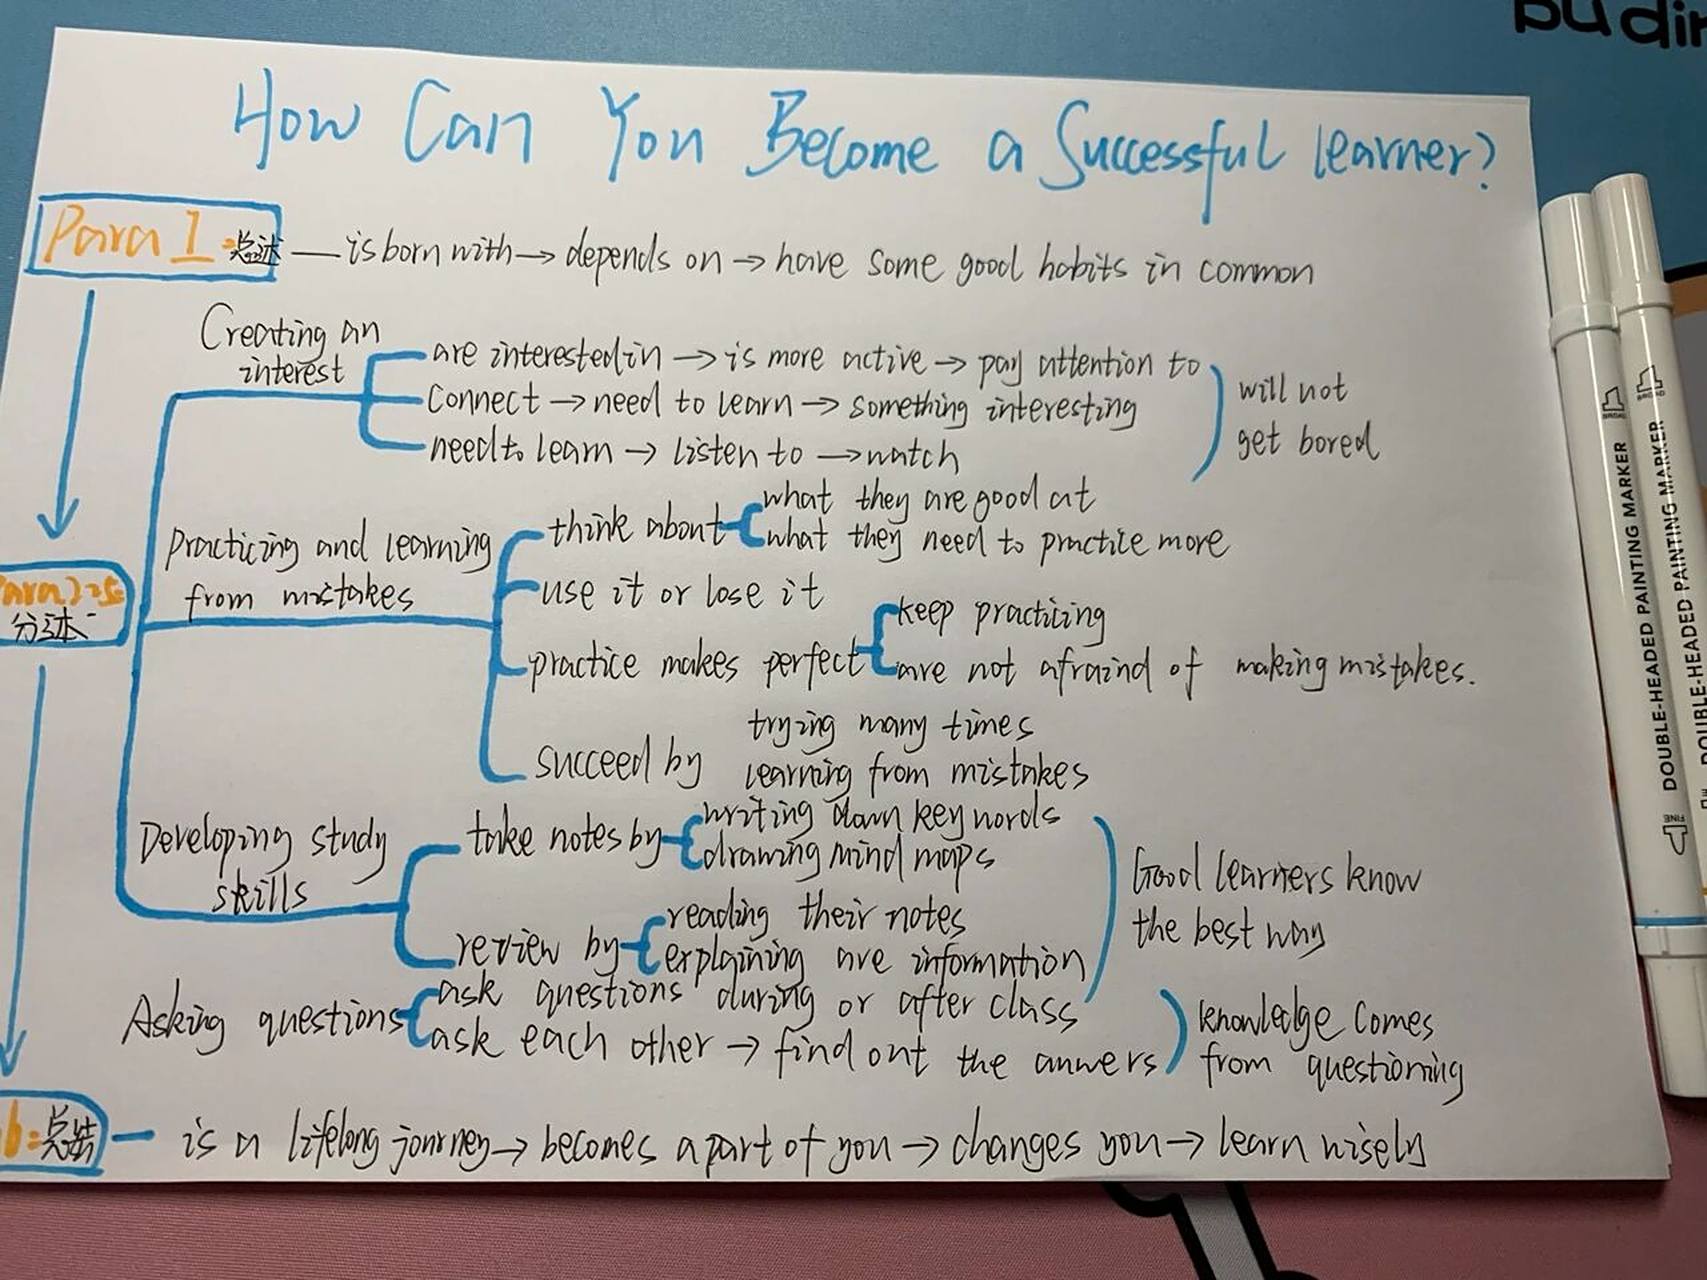 pudin
How Can You Become a Successful learner?
Para 1:总述 — is born with → depends on → have some good habits in common
Creating an
interest
are interested in → is more active → pay attention to
Connect → need to learn → something interesting
need to learn → listen to → watch
will not
get bored
practicing and learning
from mistakes
think about
what they are good at
what they need to practice more
use it or lose it
practice makes perfect
keep practicing
are not afraind of making mistakes.
succeed by
trying many times
learning from mistakes
Para2-5:
分述
Developing study
skills
take notes by
writing down key words
drawing mind maps
review by
reading their notes
explaining are information
Good learners know
the best way
Asking questions
ask questions during or after class
ask each other → find out the anwers
knowledge comes
from questioning
6:总结 — is a lifelong journey → becomes a part of you → changes you → learn wisely
BROAD
DOUBLE-HEADED PAINTING MARKER
FINE
BROAD
DOUBLE-HEADED PAINTING MARKER